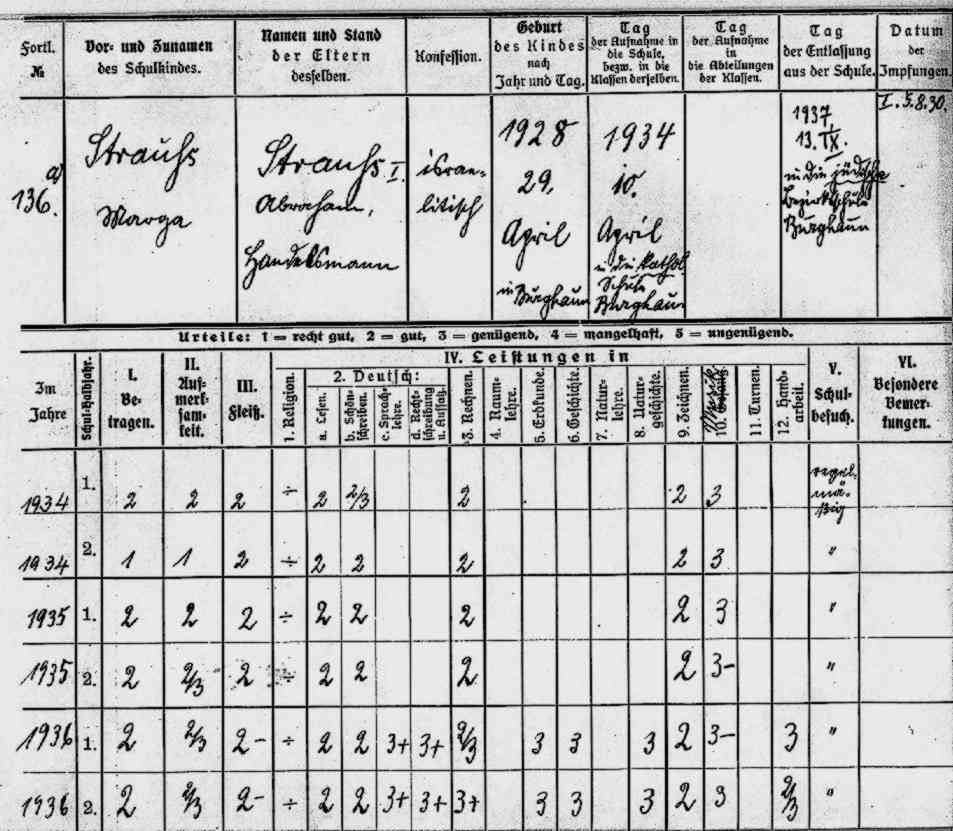 Fortl. №
Vor- und Zunamen des Schulkindes.
Namen und Stand der Eltern desselben.
Konfession.
Geburt des Kindes nach Jahr und Tag.
Tag der Aufnahme in die Schule, bezw. in die Klassen derselben.
Tag der Aufnahme in die Abteilungen der Klassen.
Tag der Entlassung aus der Schule.
Datum der Impfungen.
a)
136.
Strauhs
Marga
Strauhs I.
Abraham,
Handelsmann
israe-
litisch
1928
29.
April
in Burghaun
1934
10.
April
in die kathol
Schule
Burghaun
1937
13. IX.
in die jüdische
Bezirksschule
Burghaun
I. 5.8.30.
Urteile: 1 = recht gut, 2 = gut, 3 = genügend, 4 = mangelhaft, 5 = ungenügend.
Im Jahre
Schul-Halbjahr.
I. Be- tragen.
II. Auf- merk- sam- keit.
III. Fleiß.
IV. Leistungen in
1. Religion.
2. Deutsch:
a. Lesen.
b. Schön- schreiben.
c. Sprach- lehre.
d. Recht- schreibung u. Aufsatz.
3. Rechnen.
4. Raum- lehre.
5. Erdkunde.
6. Geschichte.
7. Natur- lehre.
8. Natur- geschichte.
9. Zeichnen.
Musik
10. Gesang.
11. Turnen.
12. Hand- arbeit.
V. Schul- besuch.
VI. Besondere Bemer- kungen.
1934 1. 2 2 2 ÷ 2 2/3 2 2 3 regel- mä- ßig
1934 2. 1 1 2 ÷ 2 2 2 2 3 "
1935 1. 2 2 2 ÷ 2 2 2 2 3 "
1935 2. 2 2/3 2 ÷ 2 2 2 2 3- "
1936 1. 2 2/3 2- ÷ 2 2 3+ 3+ 2/3 3 3 3 2 3- 3 "
1936 2. 2 2/3 2- ÷ 2 2 3+ 3+ 3+ 3 3 3 2 3 2/3 "